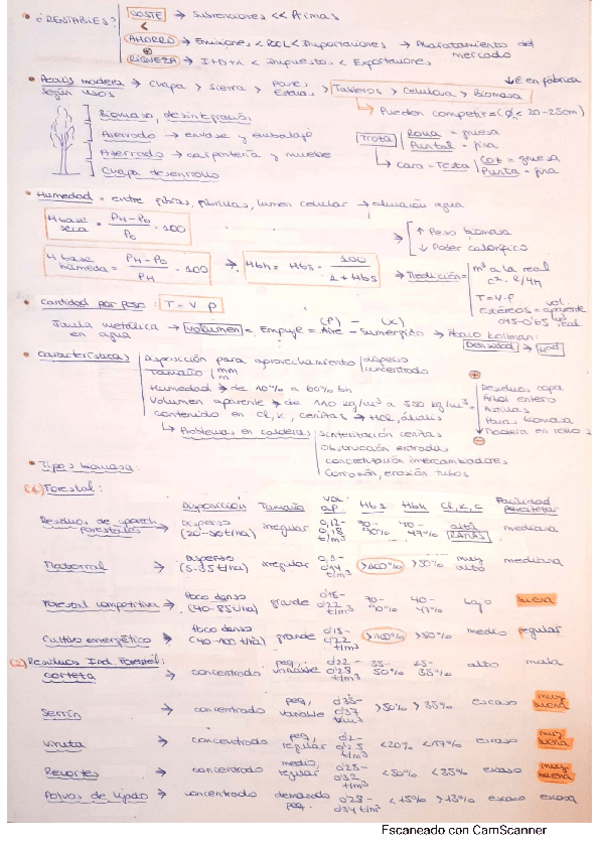 • ¿RENTABLES? COSTE → Subvenciones << Primas
<
AHORRO → Emisiones < POOL < Importaciones → Abaratamiento del mercado
RIQUEZA → I+D+i < Impuestos < Exportaciones
• Precios madera según usos → Chapa > Sierra > Poste, Estaca, > Tableros > Celulosa > Biomasa
↓ € en fábrica
→ Pueden competir = (Ø < 20-25cm)
Biomasa desintegración
Aserrado → envase y embalaje
Aserrado → carpintería y mueble
Chapa desenrollo
Trota Rolla = gruesa
Puntal = fina
→ Cara-Testa Coz = gruesa
Punta = fina
• Humedad = entre fibras, fibrillas, lumen celular → agua
H base seca = PH - P0 / P0 · 100
H base húmeda = PH - P0 / PH · 100
→ Hbh = Hbs · 100 / 1 + Hbs
→ ↑ Peso biomasa
↓ Poder calorífico
→ Medición = m³ a la real
T = V·P
estéreos = vol. aparente
real
• Cantidad por peso: T = V · P
Jaula metálica en agua → Volumen = Empuje = Aire (P) - Sumergido (x) → Kollman:
Densidad →
• Características Disposición para aprovechamiento disperso
concentrado
Tamaño mm
m
Humedad → de 10% a 60% bh
Volumen aparente → de 110 kg/m³ a 350 kg/m³
contenido en Cl, K, cenizas → HCl, álcalis
→ Problemas en calderas Sinterización cenizas
Obstrucción entrada
intercambiadores
Corrosión, erosión tubos
⊕
Residuos copa
Árbol entero
Astillas
Pacas biomasa
Madera en rollo
⊖
• Tipos biomasa
(1) Forestal:
Disposición Tamaño vol. ap. Hbs Hbh Cl, K, C Facilidad
Residuos de aprov. forestales → disperso (20-50t/ha) irregular 0,12-0,18 t/m³ 70-90% 40-47% alta mediana
Matorral → disperso (5-35t/ha) irregular 0,1-0,14 t/m³ >100% >50% muy alto mediana
Forestal competitiva → poco denso (40-85t/ha) grande 0,15-0,22 t/m³ 70-90% 40-47% bajo buena
Cultivo energético → poco denso (40-100t/ha) grande 0,15-0,22 t/m³ >100% >50% medio regular
(2) Residuos Ind. Forestal:
Corteza → concentrado peq, variable 0,22-0,28 t/m³ 55-50% 25-35% alto mala
Serrín → concentrado peq, variable 0,35-0,37 t/m³ >50% >35% escaso muy buena
Viruta → concentrado peq, regular 0,2-0,25 t/m³ <20% <17% escaso muy buena
Recortes → concentrado medio, regular 0,25-0,32 t/m³ <50% <35% escaso muy buena
Polvos de lijado → concentrado demasiado peq. 0,28-0,34 t/m³ <15% >13% escaso escasa
Escaneado con CamScanner